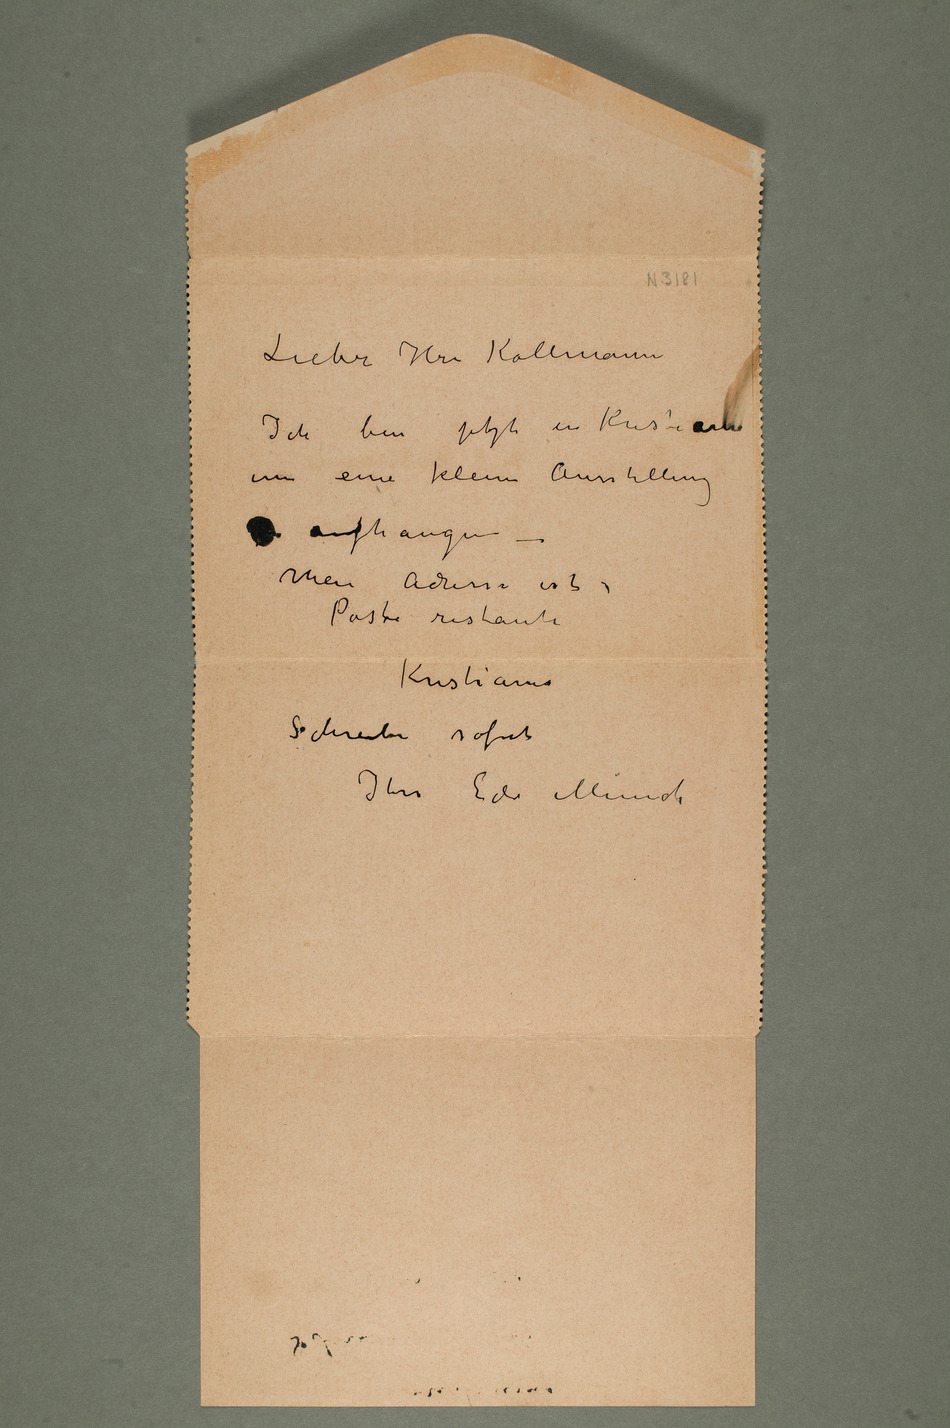 N 3181
Lieber Herr Kollmann
Ich bin jetzt in Kristiania
um eine kleine Ausstellung
aufhangen —
Mein Adresse ist,
Poste restante
Kristiania
Schreiben sofort
Ihr Edv Munch